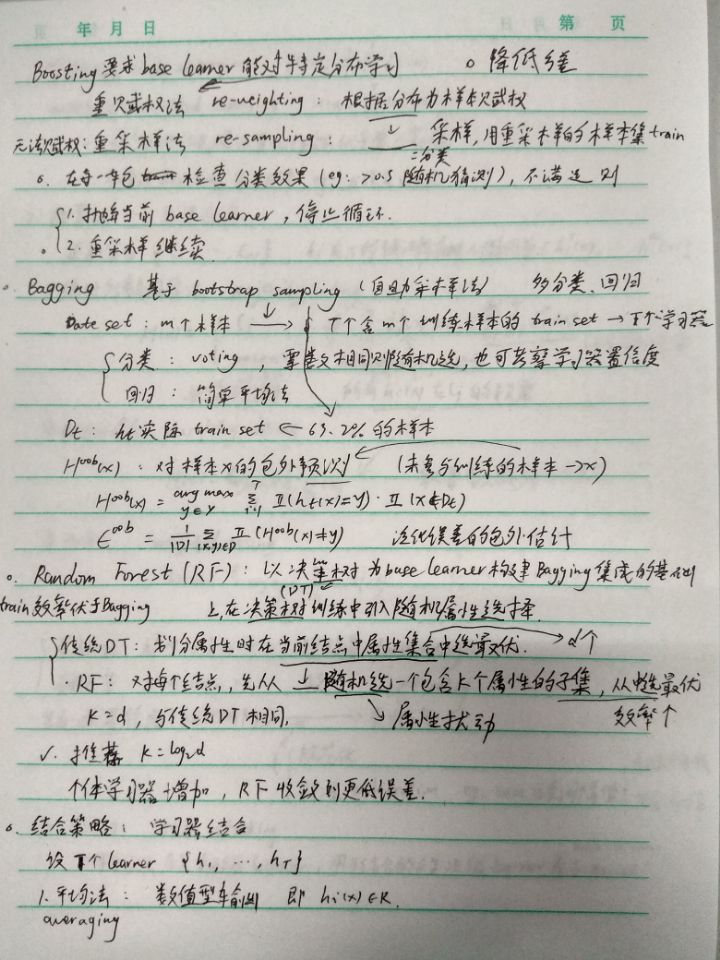 年 月 日 第 页
Boosting 要求 base learner 能对特定分布学习 。降低偏差
重赋权法 re-weighting: 根据分布为样本赋权
无法赋权: 重采样法 re-sampling: ↓ 采样, 用重采样的样本集train
二分类
。在每一轮 检查分类效果 (eg: >0.5 随机猜测), 不满足则
1. 抛弃当前 base learner, 停止循环.
。2. 重采样继续.
。Bagging 基于 bootstrap sampling (自助采样法) 多分类、回归
Date set: m个样本 → T个含m个训练样本的 train set → T个学习器
分类: voting, 票数相同则随机选, 也可考察学习器置信度
回归: 简单平均法
Dt: ht实际 train set ← 63.2%的样本
Hoob(x): 对样本x的包外预测 (未参与训练的样本→x)
Hoob(x) = arg max y∈Y Σ II(ht(x)=y)·II(x∉Dt)
εoob = 1/|D| Σ (x,y)∈D II(Hoob(x)≠y) 泛化误差的包外估计
。Random Forest (RF): 以决策树为base learner构建Bagging集成的基础
(DT)
train效率优于Bagging 上, 在决策树训练中引入随机属性选择.
传统DT: 划分属性时在当前结点中属性集合中选最优. → d个
·RF: 对每个结点, 先从 ↓ 随机选一个包含k个属性的子集, 从中选最优
K=d, 与传统DT相同. ↘ 属性扰动 效率↑
✓. 推荐 K=log₂d
个体学习器增加, RF 收敛到更低误差.
。结合策略: 学习器结合
设T个learner {h₁, ..., hT}
1. 平均法: 数值型输出 即 hi(x)∈R.
averaging